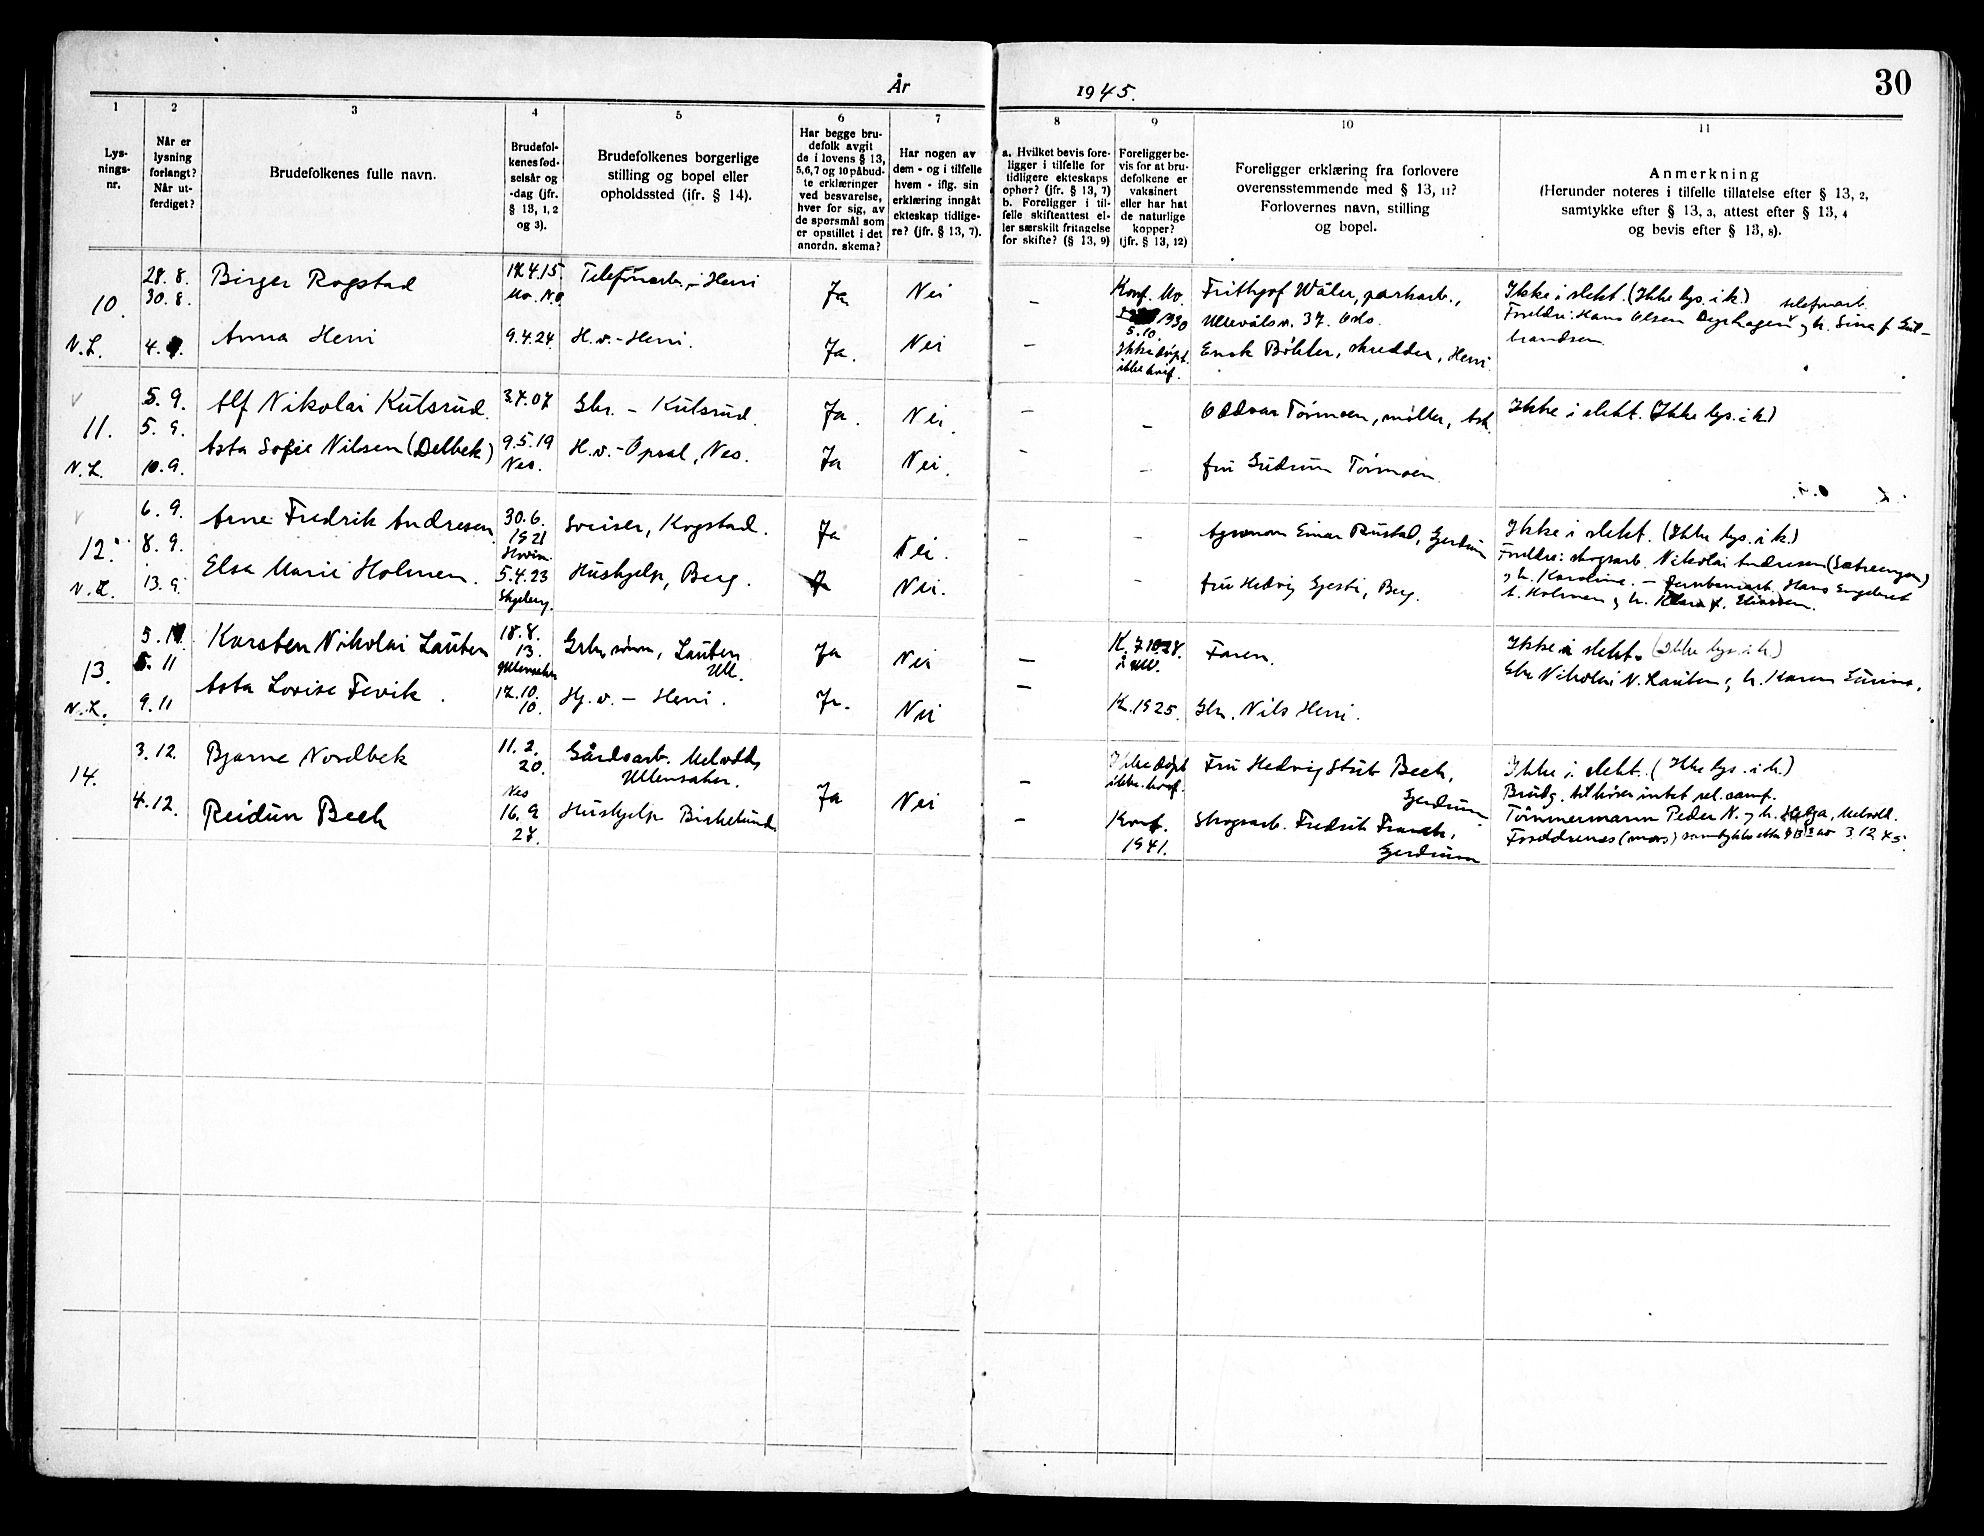 30
År 1945.
1
Lys-
nings-
nr.
2
Når er
lysning
forlangt?
Når ut-
ferdiget?
3
Brudefolkenes fulle navn.
4
Brudefol-
kenes fød-
selsår og
-dag (jfr.
§ 13, 1, 2
og 3).
5
Brudefolkenes borgerlige
stilling og bopel eller
opholdssted (ifr. § 14).
6
Har begge bru-
defolk avgit
de i lovens § 13,
5,6,7 og 10 påbud-
te erklæringer
ved besvarelse,
hver for sig, av
de spørsmål som
er opstillet i det
anordn. skema?
7
Har nogen av
dem - og i tilfelle
hvem - iflg. sin
erklæring inngåt
ekteskap tidlige-
re? (jfr. § 13, 7).
8
a. Hvilket bevis fore-
ligger i tilfelle for
tidligere ekteskaps
ophør? (jfr. § 13, 7)
b. Foreligger i til-
felle skifteattest el-
ler særskilt fritagelse
for skifte? (§ 13, 9)
9
Foreligger be-
vis for at bru-
defolkene er
vaksinert
eller har hat
de naturlige
kopper?
(jfr. § 13, 12)
10
Foreligger erklæring fra forlovere
overensstemmende med § 13, 11?
Forlovernes navn, stilling
og bopel.
11
Anmerkning
(Herunder noteres i tilfelle tillatelse efter § 13, 2,
samtykke efter § 13, 3, attest efter § 13, 4
og bevis efter § 13, 8).
10.
N.L.
28. 8.
30. 8.
4.
Birger Rogstad
Mo. N.O
Telefonarb., Herri
Ja
Nei
–
Konf. Mo.
1930
5.10.
Frithjof Wåler, parkarb.,
Ullevålsv. 37. Oslo.
Ikke i slekt. (Ikke lys. i k.) telefonarb.
Foreldre: Hans Olsen
Anna Herri
9.4.24
H.v. - Herri.
Ja.
Nei
–
Ikke døpt.
ikke konf.
Bøhler, skredder, Herri
11.
N.L.
5. 9.
5. 9.
10. 9.
Alf Nikolai Kulsrud.
3.7.07
Gbr. – Kulsrud.
Ja.
Nei.
–
Oddvar Tormoen, møller, Ask.
Ikke i slekt. (Ikke lys. i k.)
Asta Sofie Nilsen (Delbek)
9.5.19
Nes.
H.v. - Opsal, Nes.
Ja
Nei.
–
–
fru Gudrun Tormoen.
12.
N.L.
6. 9.
8. 9.
13. 9.
Arne Fredrik Andresen
30.6.
1921
Hovin
Sveiser, Kogstad.
Ja
Nei.
–
–
Agronom Einar Rustad, Gjerdrum
Ikke i slekt. (Ikke lys. i k.)
Foreldre: skogsarb. Nikolai Andresen (Sætreengen)
Elsa Marie Holmen.
5.4.23
Skjeberg.
Hushjelp, Berg.
Nei.
–
–
fru Hedvig Gjesti, Berg.
Karoline. – Hans Engebret
13.
N.L.
5. 11
9. 11
Karsten Nikolai Lauten
18.8.
13.
Ullensaker
Gbr. sønn, Lauten
Ull.
Ja
Nei
–
Faren.
Ikke i slekt. (Ikke lys. i k.)
Gbr Nikolai N. Lauten,
Asta Lovise Fevik.
17.10.
10.
Hj.v. – Herri.
Ja.
Nei
–
K. 1925.
Gbr. Nils Herri.
14.
3.12.
4.12.
Bjarne Nordbek
11. 2.
20.
Nes
Gårdsarb. Melvold
Ullensaker.
Ja
Nei
–
Ikke døpt
ikke konf.
Fru Hedvig Stub Bech,
Gjerdrum
Ikke i slekt. (Ikke lys. i k.)
Brudg. tilhører intet rel. samf.
Tømmermann Peder N. og h. Helga, Melvold.
Reidun Bech
16. 9
27.
Hushjelp Birkelund
–
Konf.
1941.
Skogsarb. Fredrik Franch,
Gjerdrum
Foreldrenes (mors) samtykke etter § 13 2 av 3 12 45.